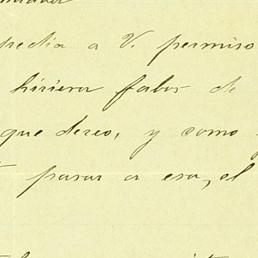 pedia a V. permiso
hiciera fabor de
que deseo, y como
pasar a esa, el